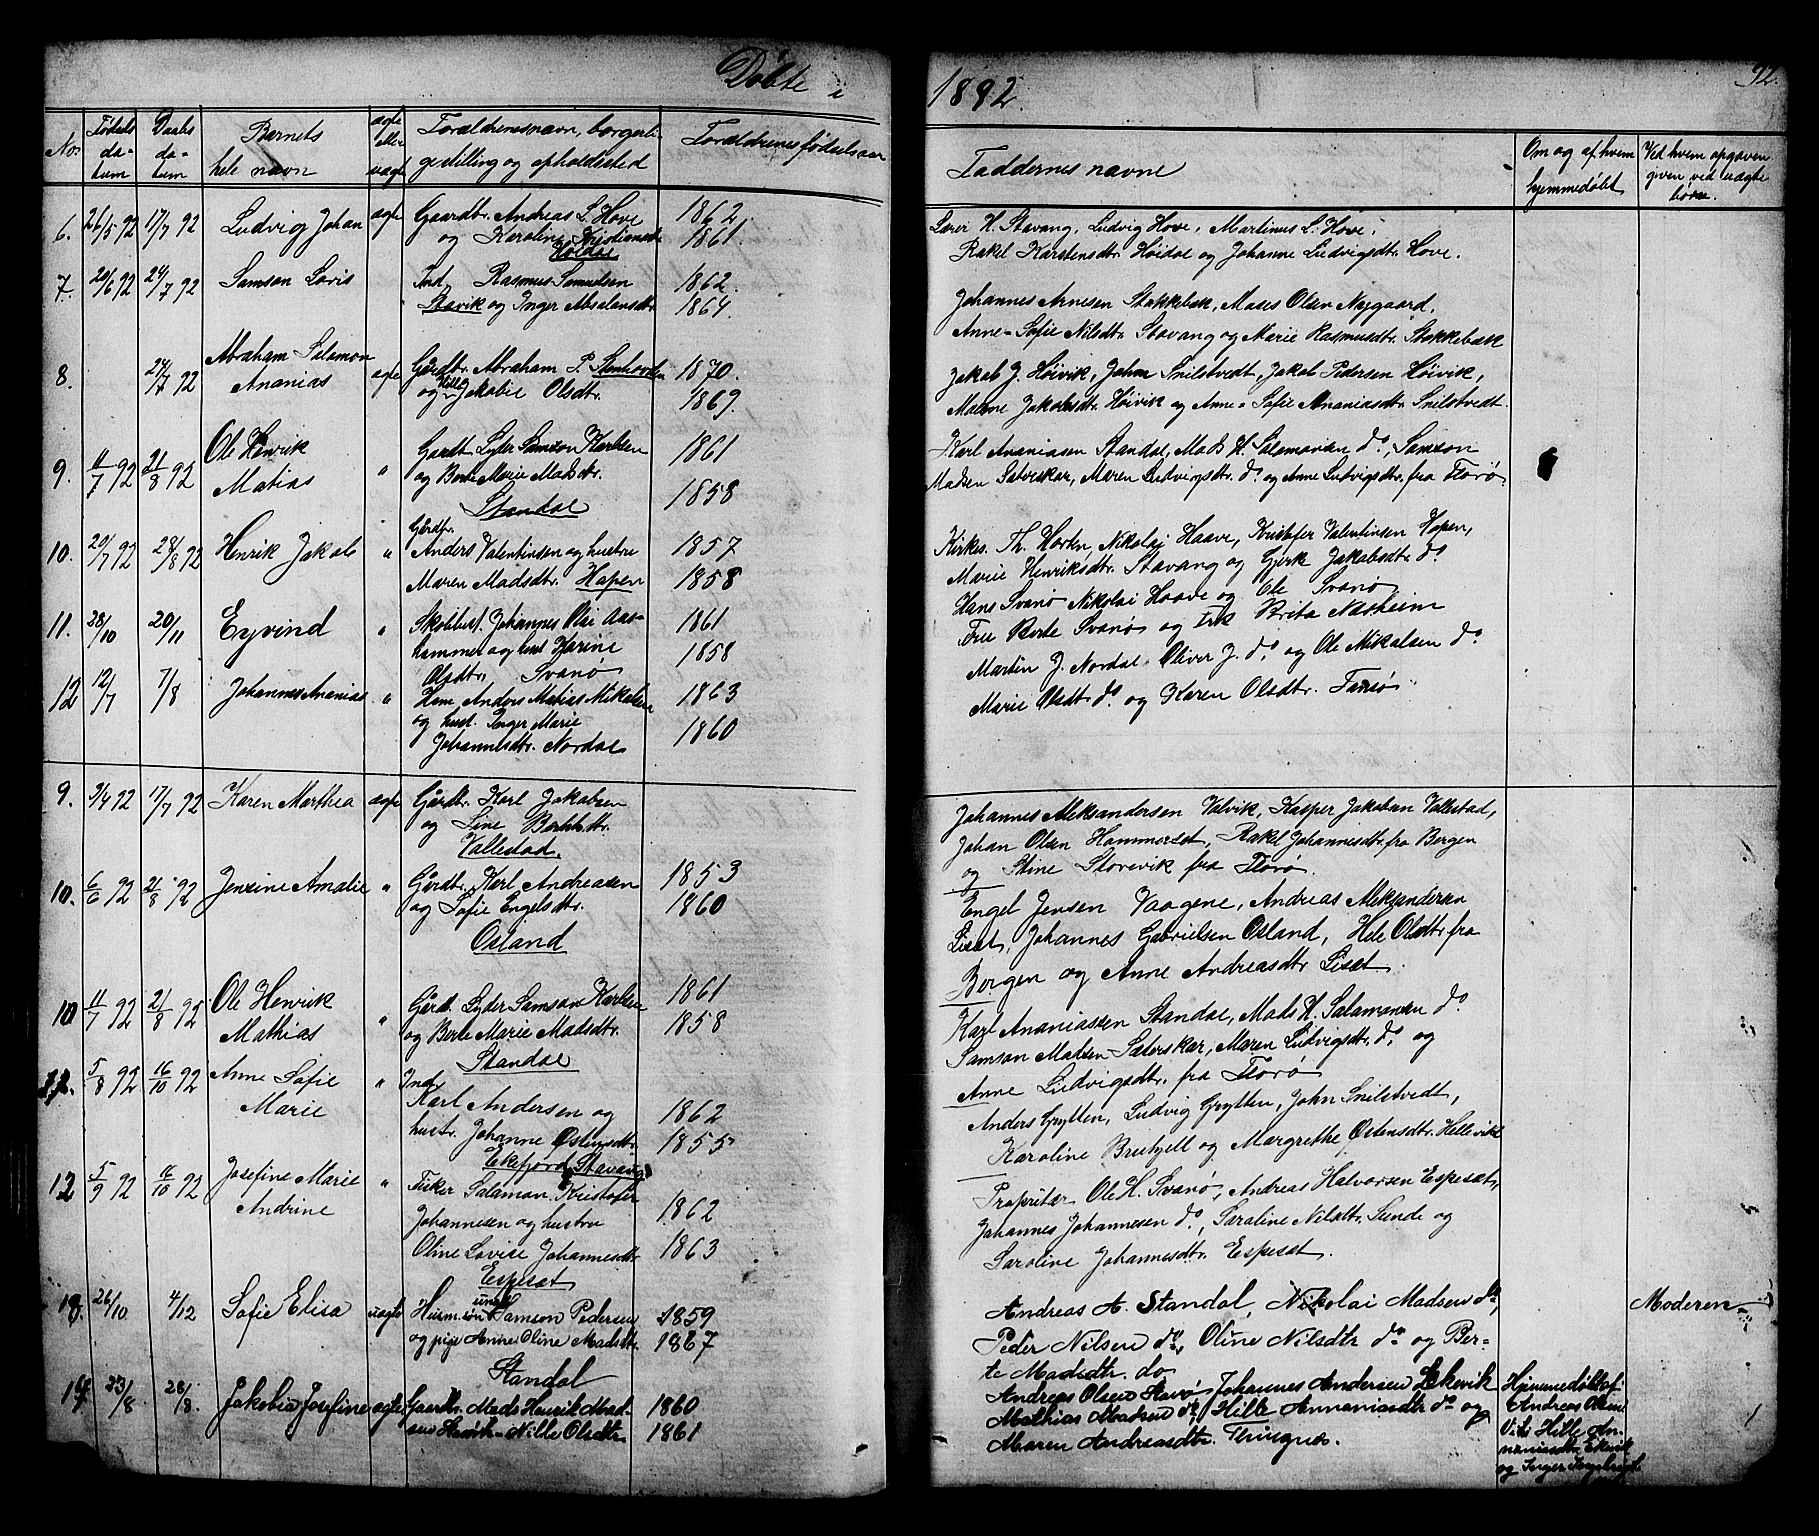 Döbte i
1892.
92.
No.
Fødsels
da-
tum
Daabs
da-
tum
Barnets
hele navn
ægte
eller
uægte
Forældrenes navn, borgerli
ge stilling og opholdssted
Forældrenes fødselsaar
Faddernes navne
Om og af hvem
hjemmedöbt
Ved hvem opgaven
given ved uægte
børn.
6. 26/5 92 17/7 92 Ludvig Johan ægte Gaardbr. Andreas L. Hove 1862.
og Karoline Kristiansdtr 1861.
Lærer H. Stavang, Ludvig Hove, Martinus L. Hove,
Rakel Karstensdtr. Höidal og Johanne Ludvigsdtr. Hove.
7. 20/6 92 24/7 92 Samson Lovis Ind. Rasmus Samuelsen 1862.
Stavik og Inger Absalonsdtr. 1864.
Johannes Arnesen Stokkebæk, Moses Olsen Nygaard,
Anne-Sofie Nilsdtr. Stavang og Marie Rasmusdtr. Stokkebæk
8. 24/7 92 Abraham Salamon
Ananias ægte Gårdbr. Abraham P. Stenhovden 1870.
og Jakobie Olsdtr. 1869.
Jakob J. Höivik, John Snilstvedt, Jakob Pedersen Höivik,
Malene Jakobsdtr. Höivik og Anne-Sofie Ananiasdtr. Snilstvedt.
9. 11/7 92 21/8 92 Ole Henrik
Matias " Gardbr. Lyder Samson Karlsen 1861
og Berte Marie Madsdtr. 1858
Standal
Karl Ananiasen Standal, Mads H. Salamonsen do, Samson
Madsen Sæterskar, Maren Ludvigsdtr. do og Anne Ludvigsdtr. fra Florø
10. 20/7 92 28/8 92 Henrik Jakob " Gårdbr.
Anders Valentinsen og hustru 1857
Maren Madsdtr. Hopen 1858
Kirkes. Th. Horten, Nikolai Haave, Kristofer Valentinsen Hopen,
Marie Henriksdtr. Stavang og Gjerk Jakobsdtr. do
11. 28/10 20/11 Eyvind " Skolebest. Johannes Olai Aas- 1861
hammer og hust Karine 1858
Olsdtr. Svanø
Hans Svanø Nikolai Haave og Ole Svanø
Fru Berte Svanø og Frk Brita Næsheim
12 12/7 7/8 Johannes Ananias " Hm. Anders Matias Mikalsen 1863
og hust. Inger Marie 1860
Johannesdtr. Nordal
Martin J. Nordal Oliver J. do og Ole Mikalsen do
Marie Olsdtr do og Karen Olsdtr. Fansø
9. 3/4 92 17/7 92 Karen Marthea ægte Gårdbr. Karl Jakobsen
og Sine Berthtdtr.
Vallestad.
Johannes Aleksandersen Valvik, Kasper Jakobsen Vallestad,
Johan Olsen Hammerset, Rakel Johannesdtr. fra Bergen
og Stine Storevik fra Florø.
10. 6/6 92 21/8 92 Jensine Amalie " Gårdbr. Karl Andreasen 1853
og Sofie Engelsdtr. 1860
Osland
Engel Jensen Vaagene, Andreas Aleksandersen
Liset, Johannes Gabrielsen Osland, Hele Olsdtr. fra
Bergen og Anne Andreasdtr Liset.
10 11/7 92 21/8 92 Ole Henrik
Mathias " Gård. Lyder Samson Karlsen 1861
og Berte Marie Madsdtr. 1858
Standal
Karl Ananiassen Standal, Mads H. Salamonsen do
Samson Madsen Sæterskar, Maren Ludvigsdtr. do og
Anne Ludvigsdtr. fra Florø
5/8 92 16/10 92 Anne Sofie
Marie " Ind.
Karl Andersen og 1862
hustr. Johanne Østensdtr. 1855
Ekefjord Stavang
Anders Grytten, Ludvig Grytten, John Snilstvedt,
Karoline Brutjell og Margrethe Østensdtr. Hellevik
12 5/9 92 16/10 92 Josefine Marie
Andrine " Fisker Salamon Kristofer
Johannesen og hustru 1862
Oline Lovise Johannesdtr. 1863
Espeset
Proprietær Ole H. Svanø, Andreas Halvorsen Espeset,
Johannes Johannesen do, Saraline Nilsdtr. Sunde og
Saroline Johannesdtr. Espeset.
13. 26/10 4/12 Sofie Elisa uægte Husm.søn ungk. Samson Pedersen 1859
og pige Anne Oline Madsdtr. 1867
Standal
Andreas A. Standal, Nikolai Madsen do,
Peder Nilsen do, Oline Nilsdtr do og Ber-
te Madsdtr. do.
Moderen
14 23/8 28/8. Jakobia Josefine ægte Gaardbr. Mads Henrik Mad- 1860
sen Høivik - Nille Olsdtr. 1861
Andreas Olsen Stavø Johannes Andersen Ekevik
Mathias Madsen do, Hille Annaniasdtr do og
Maren Andreasdtr. Thingnes.
Hjemmedöbt af
Andreas Olsen
Vid: Hille An-
naniasdtr. Ekevik
og Inger